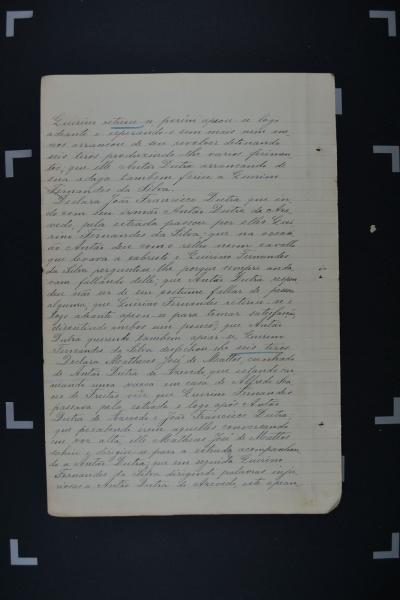 Quirim retirou-se porém apeou-se logo
adiante e esperando-o sem mais nem me-
nos arrancou de seu revolver detonando
seis tiros produzindo-lhe varios ferimen-
tos, que elle Antão Dutra arrancando de
sua adaga tambem ferio a Quirino
Fernandes da Silva.
Declara João Francisco Dutra que in-
do com seu irmão Antão Dutra de Aze-
vedo, pela estrada passou por elles Qui-
rino Fernandes da Silva que na occa
ao Antão deu com o relho num cavallo
que levava a cabresto e Quirino Fernandes
da Silva perguntou-lhe porque sempre anda
vam fallando delle; que Antão Dutra respon
deu não ser de seu costume fallar de pessoa
alguma, que Quirino Fernandes retirou-se e
logo adiante apeou-se para tomar satisfação,
discutindo ambos um pouco; que Antão
Dutra querendo tambem apear-se, Quirino
Fernandes da Silva desfechou-lhe seis tiros.
Declara Matheus José de Mattos, cunhado
de Antão Dutra de Azevedo, que estando car
neando uma vacca em casa de Alfredo
de Freitas viu que Quirino Fernandes
passava pela estrada e logo após Antão
Dutra de Azevedo e João Francisco Dutra,
que percebendo virem aquelles conversando
em voz alta, elle Matheus José de Mattos
sahiu e dirigiu-se para a estrada acompanhan
do a Antão Dutra, que em seguida Quirino
Fernandes da Silva dirigindo palavras inju
riosas a Antão Dutra de Azevedo, este apean